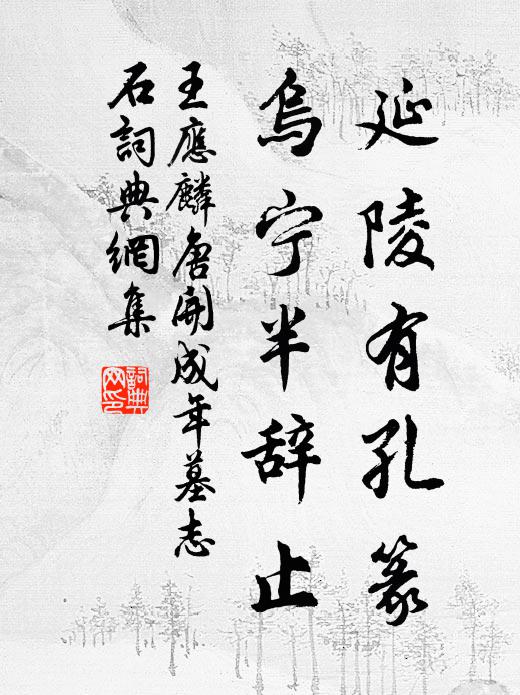 延陵有孔篆
乌宁半辞止
王應麟唐開成年墓志
石詞典網集
詞典網印